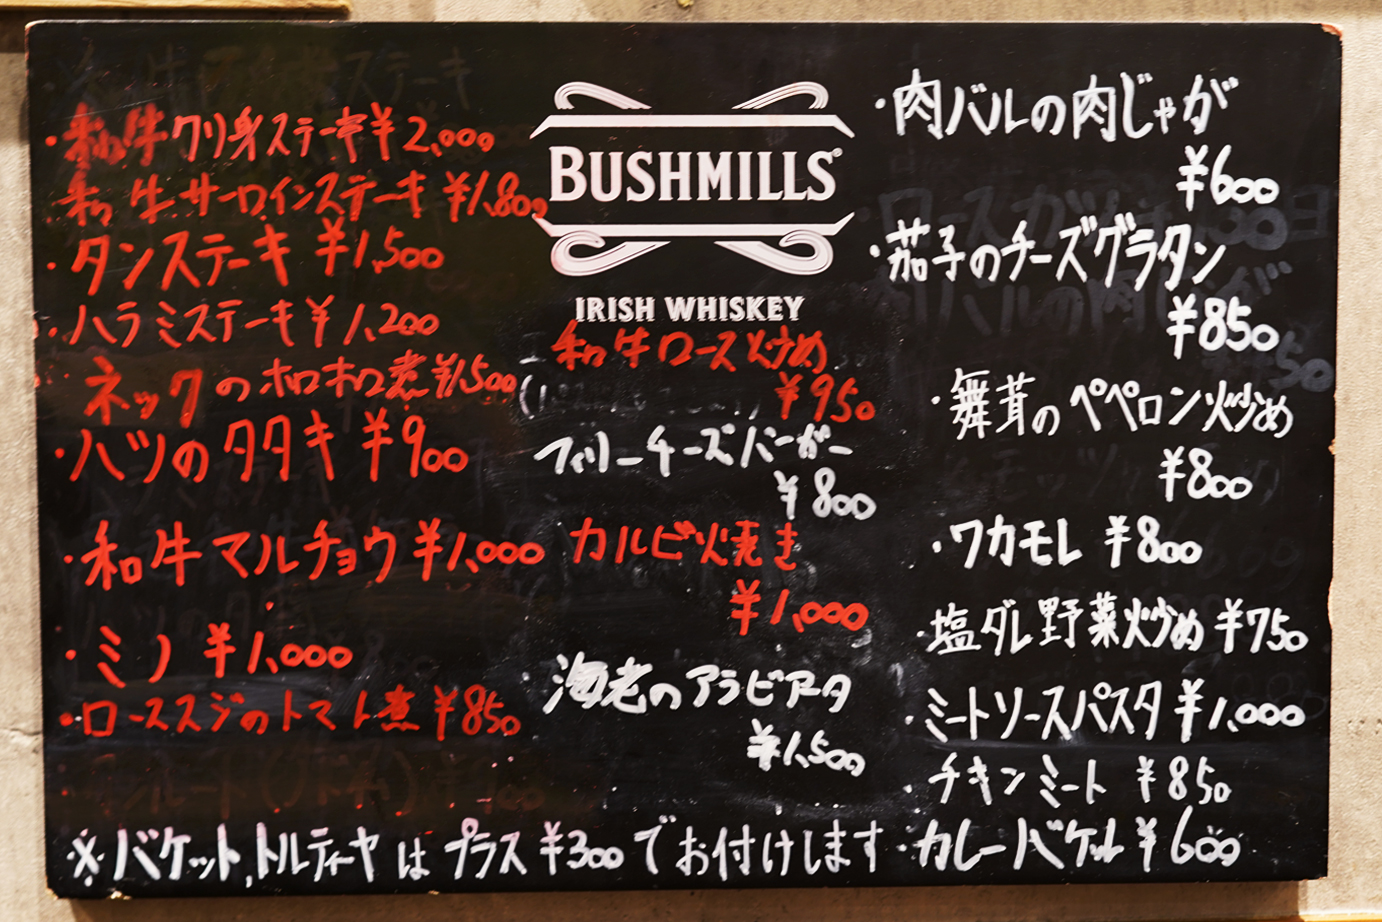 ・和牛クリ身ステーキ¥2,000
和牛サーロインステーキ ¥1,800
・タンステーキ ¥1,500
・ハラミステーキ¥1,200
ネックのホロホロ煮¥1,500
・ハツのタタキ ¥900
・和牛マルチョウ¥1,000
・ミノ ¥1,000
・ローススジのトマト煮¥850
BUSHMILLS
IRISH WHISKEY
和牛ロース炒め
¥950
フィリーチーズバーガー
¥800
カルビ焼き
¥1,000
海老のアラビアータ
¥1,500
・肉バルの肉じゃが
¥600
・茄子のチーズグラタン
¥850
・舞茸のペペロン炒め
¥800
・ワカモレ ¥800
・塩ダレ野菜炒め ¥750
・ミートソースパスタ ¥1,000
チキンミート ¥850
・カレーバケット¥600
※バケット,トルティーヤは プラス ¥300でお付けします